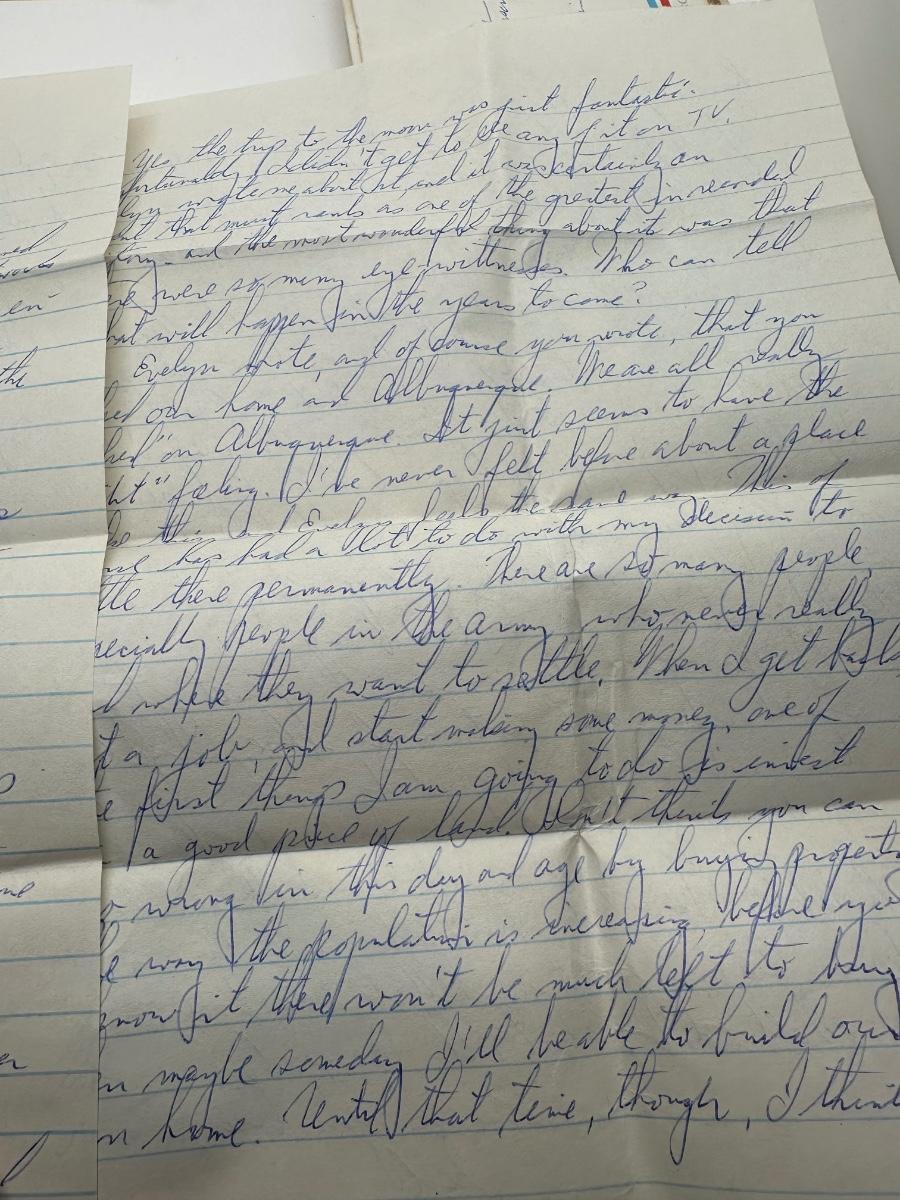 Yes, the trip to the moon was just fantastic.
fortunately I didn't get to see any of it on TV.
lyn wrote me about it, and it was certainly an
nt that must rank as one of the greatest in recorded
tory - and the most wonderful thing about it was that
re were so many eye-wittnesses. Who can tell
hat will happen in the years to come?
Evelyn wrote, and of course you wrote, that you
ed our home and Albuquerque. We are all really
" on Albuquerque. It just seems to have the
ht" feeling. I've never felt before about a place
this and Evelyn feels the same way. This of
rse has had a lot to do with my decision to
ttle there permanently. There are so many people,
pecially people in the army who never really
where they want to settle. When I get back,
t a job, and start making some money, one of
e first things I am going to do is invest
a good piece of land. I don't think you can
o wrong in this day and age by buying property
e way the population is increasing, before you
know it there won't be much left to buy
n maybe someday I'll be able to build our
n home. Until that time, though, I think
ned
en-
the
me
er